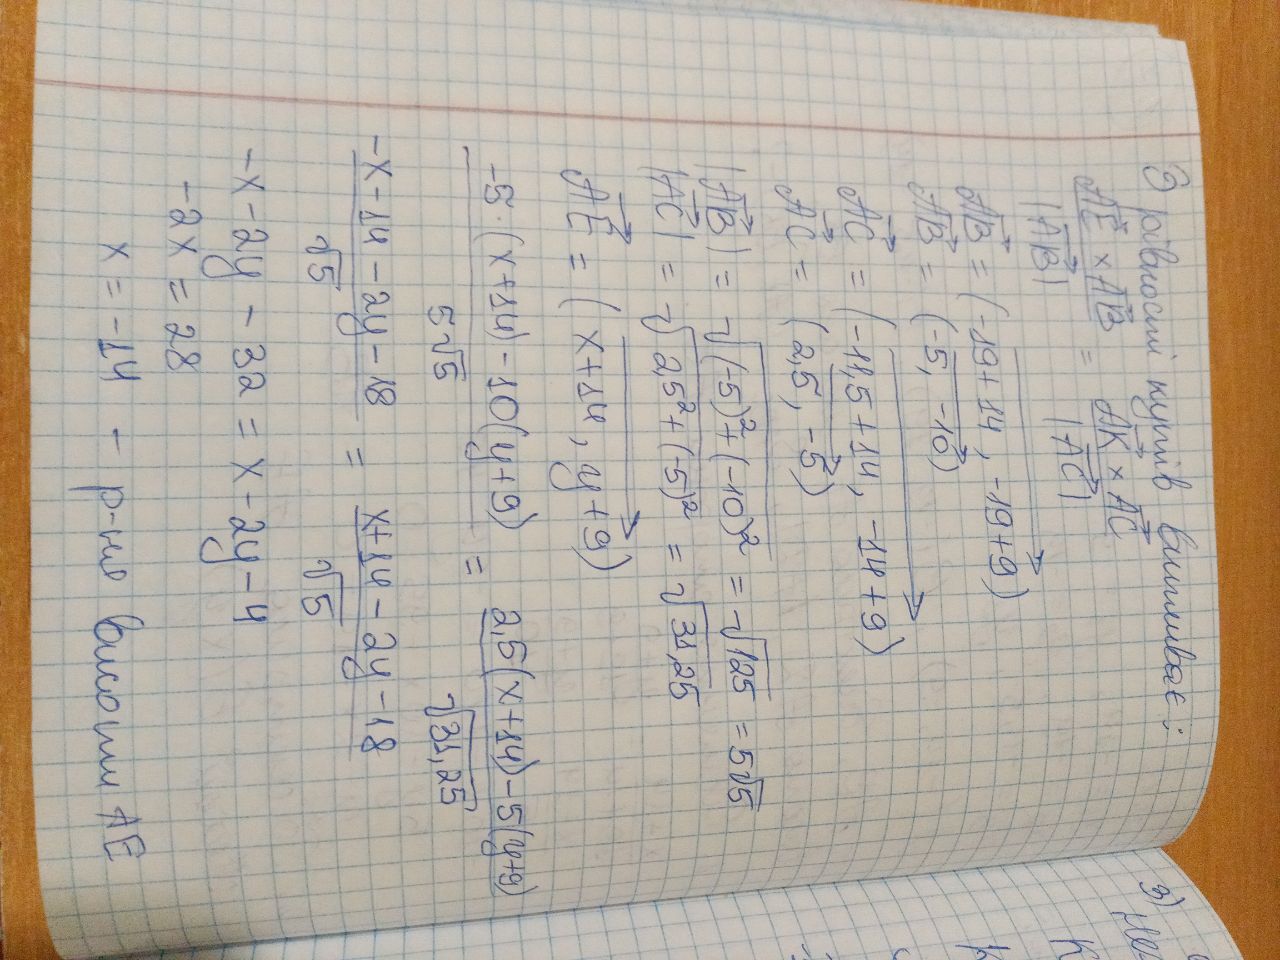 З рівності кутів випливає:
AE × AB / |AB| = AK × AC / |AC|
AB = (-19+14, -19+9)
AB = (-5, -10)
AC = (-11,5+14, -14+9)
AC = (2,5, -5)
|AB| = √((-5)²+(-10)²) = √125 = 5√5
|AC| = √(2,5²+(-5)²) = √31,25
AE = (x+14, y+9)
-5·(x+14)-10(y+9) / 5√5 = 2,5(x+14)-5(y+9) / √31,25
-x-14-2y-18 / √5 = x+14-2y-18 / √5
-x-2y-32 = x-2y-4
-2x = 28
x = -14 - р-ня висоти AE
3)